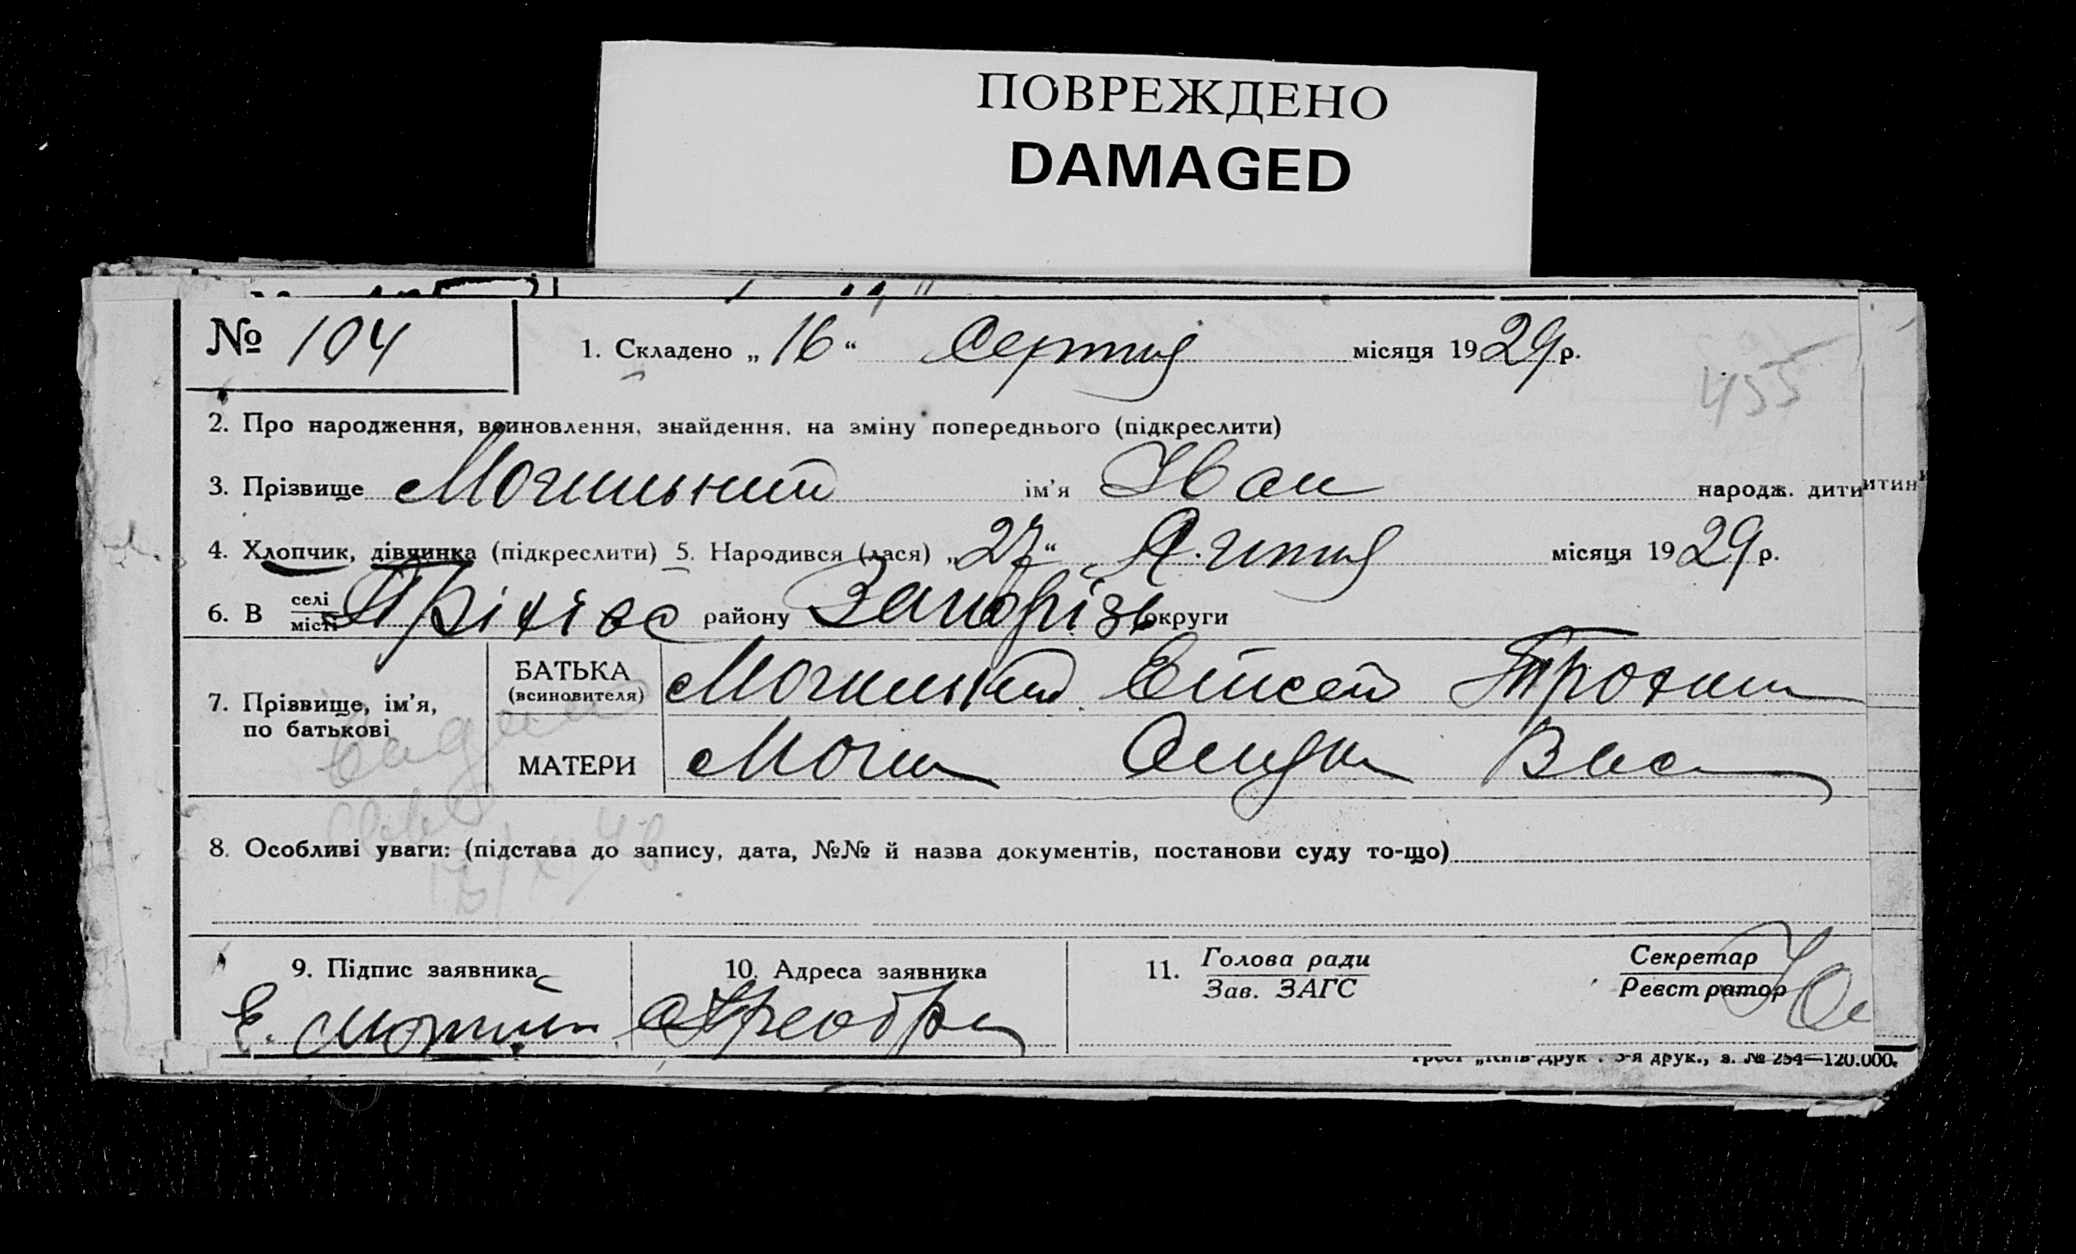 ПОВРЕЖДЕНО
DAMAGED
№ 104
1. Складено „16“ Серпня місяця 1929 р.
455
2. Про народження, всиновлення, знайдення, на зміну попереднього (підкреслити)
3. Прізвище Могильний ім'я Іван народж. дити итин
4. Хлопчик, дівчинка (підкреслити) 5. Народився (лася) „27“ місяця 1929 р.
6. В селі місті району Запорізь округи
7. Прізвище, ім'я, по батькові
БАТЬКА (всиновителя) Могильний Елисей Трохим
МАТЕРИ Могил Вас
8. Особливі уваги: (підстава до запису, дата, №№ й назва документів, постанови суду то-що)
9. Підпис заявника
10. Адреса заявника
11. Голова ради Зав. ЗАГС
Секретар Реєстратор
Е.
Трест „Київ-Друк“. 3-я друк., з. № 254—120.000.